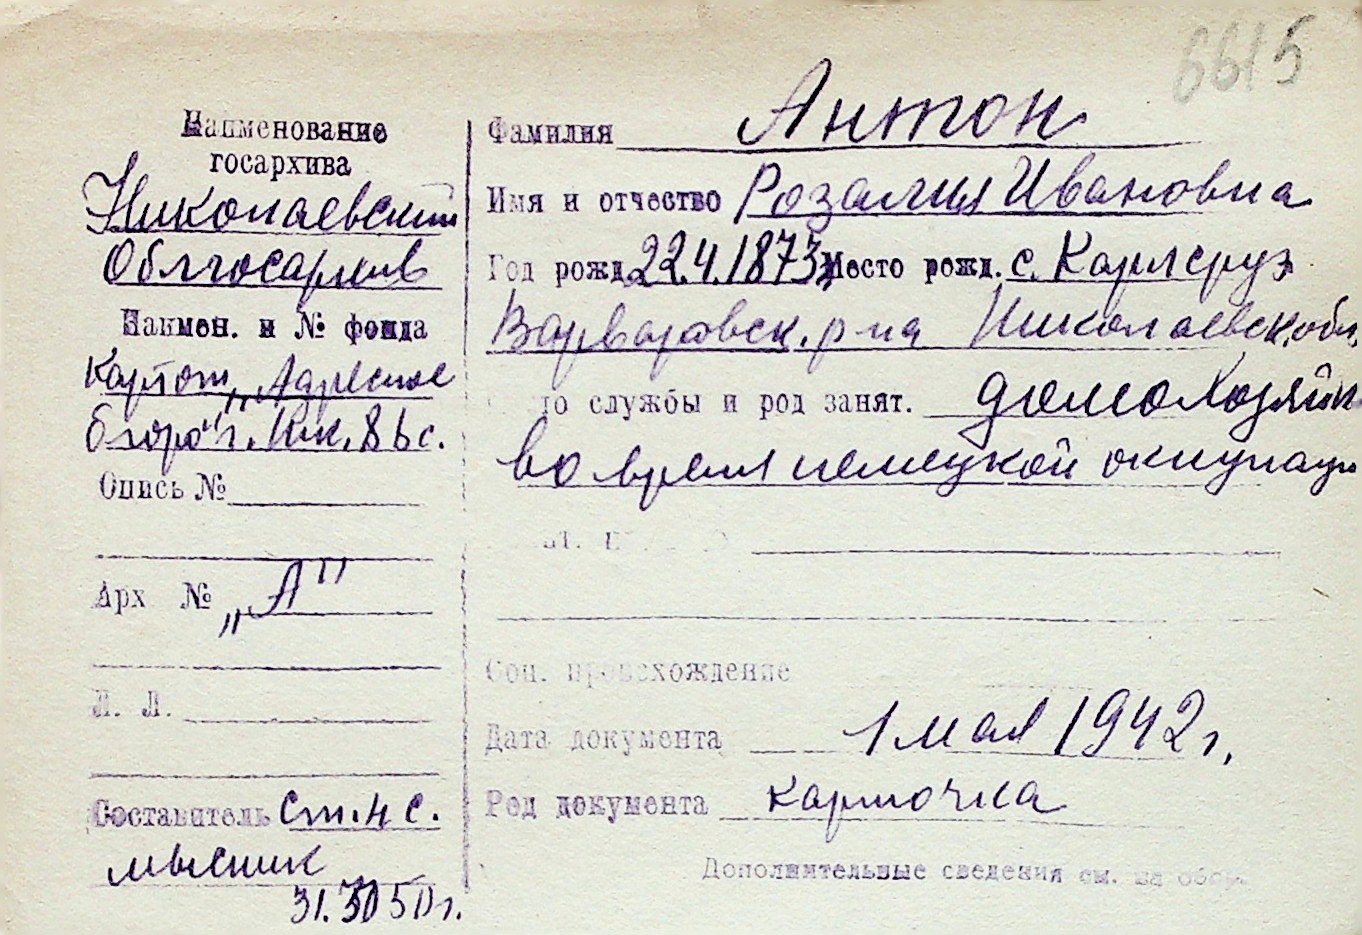 6615
Наименование
госархива
Николаевский
Облгосархив
Наимен. и № фонда
Картот. „Адресное
бюро" г. Ник.
Опись №
Арх № „А"
Л. Л.
Составитель Ст. н с.
мысник
50 г.
Фамилия Антон
Имя и отчество Розалия Ивановна
Год рожд. 22.4.1873 Место рожд. с. Карлсруэ
Варваровск. р-на Николаевск. обл.
то службы и род занят. домохозяйк
во время немецкой окупаци
Соц. происхождение
Дата документа 1 мая 1942 г.
Род документа карточка
Дополнительные сведения см. на обор.